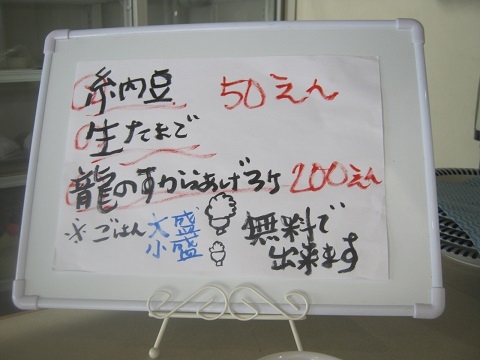 納豆 50えん
生たまご
龍のすからあげ3ヶ 200えん
※ごはん 大盛 無料で
小盛 出来ます